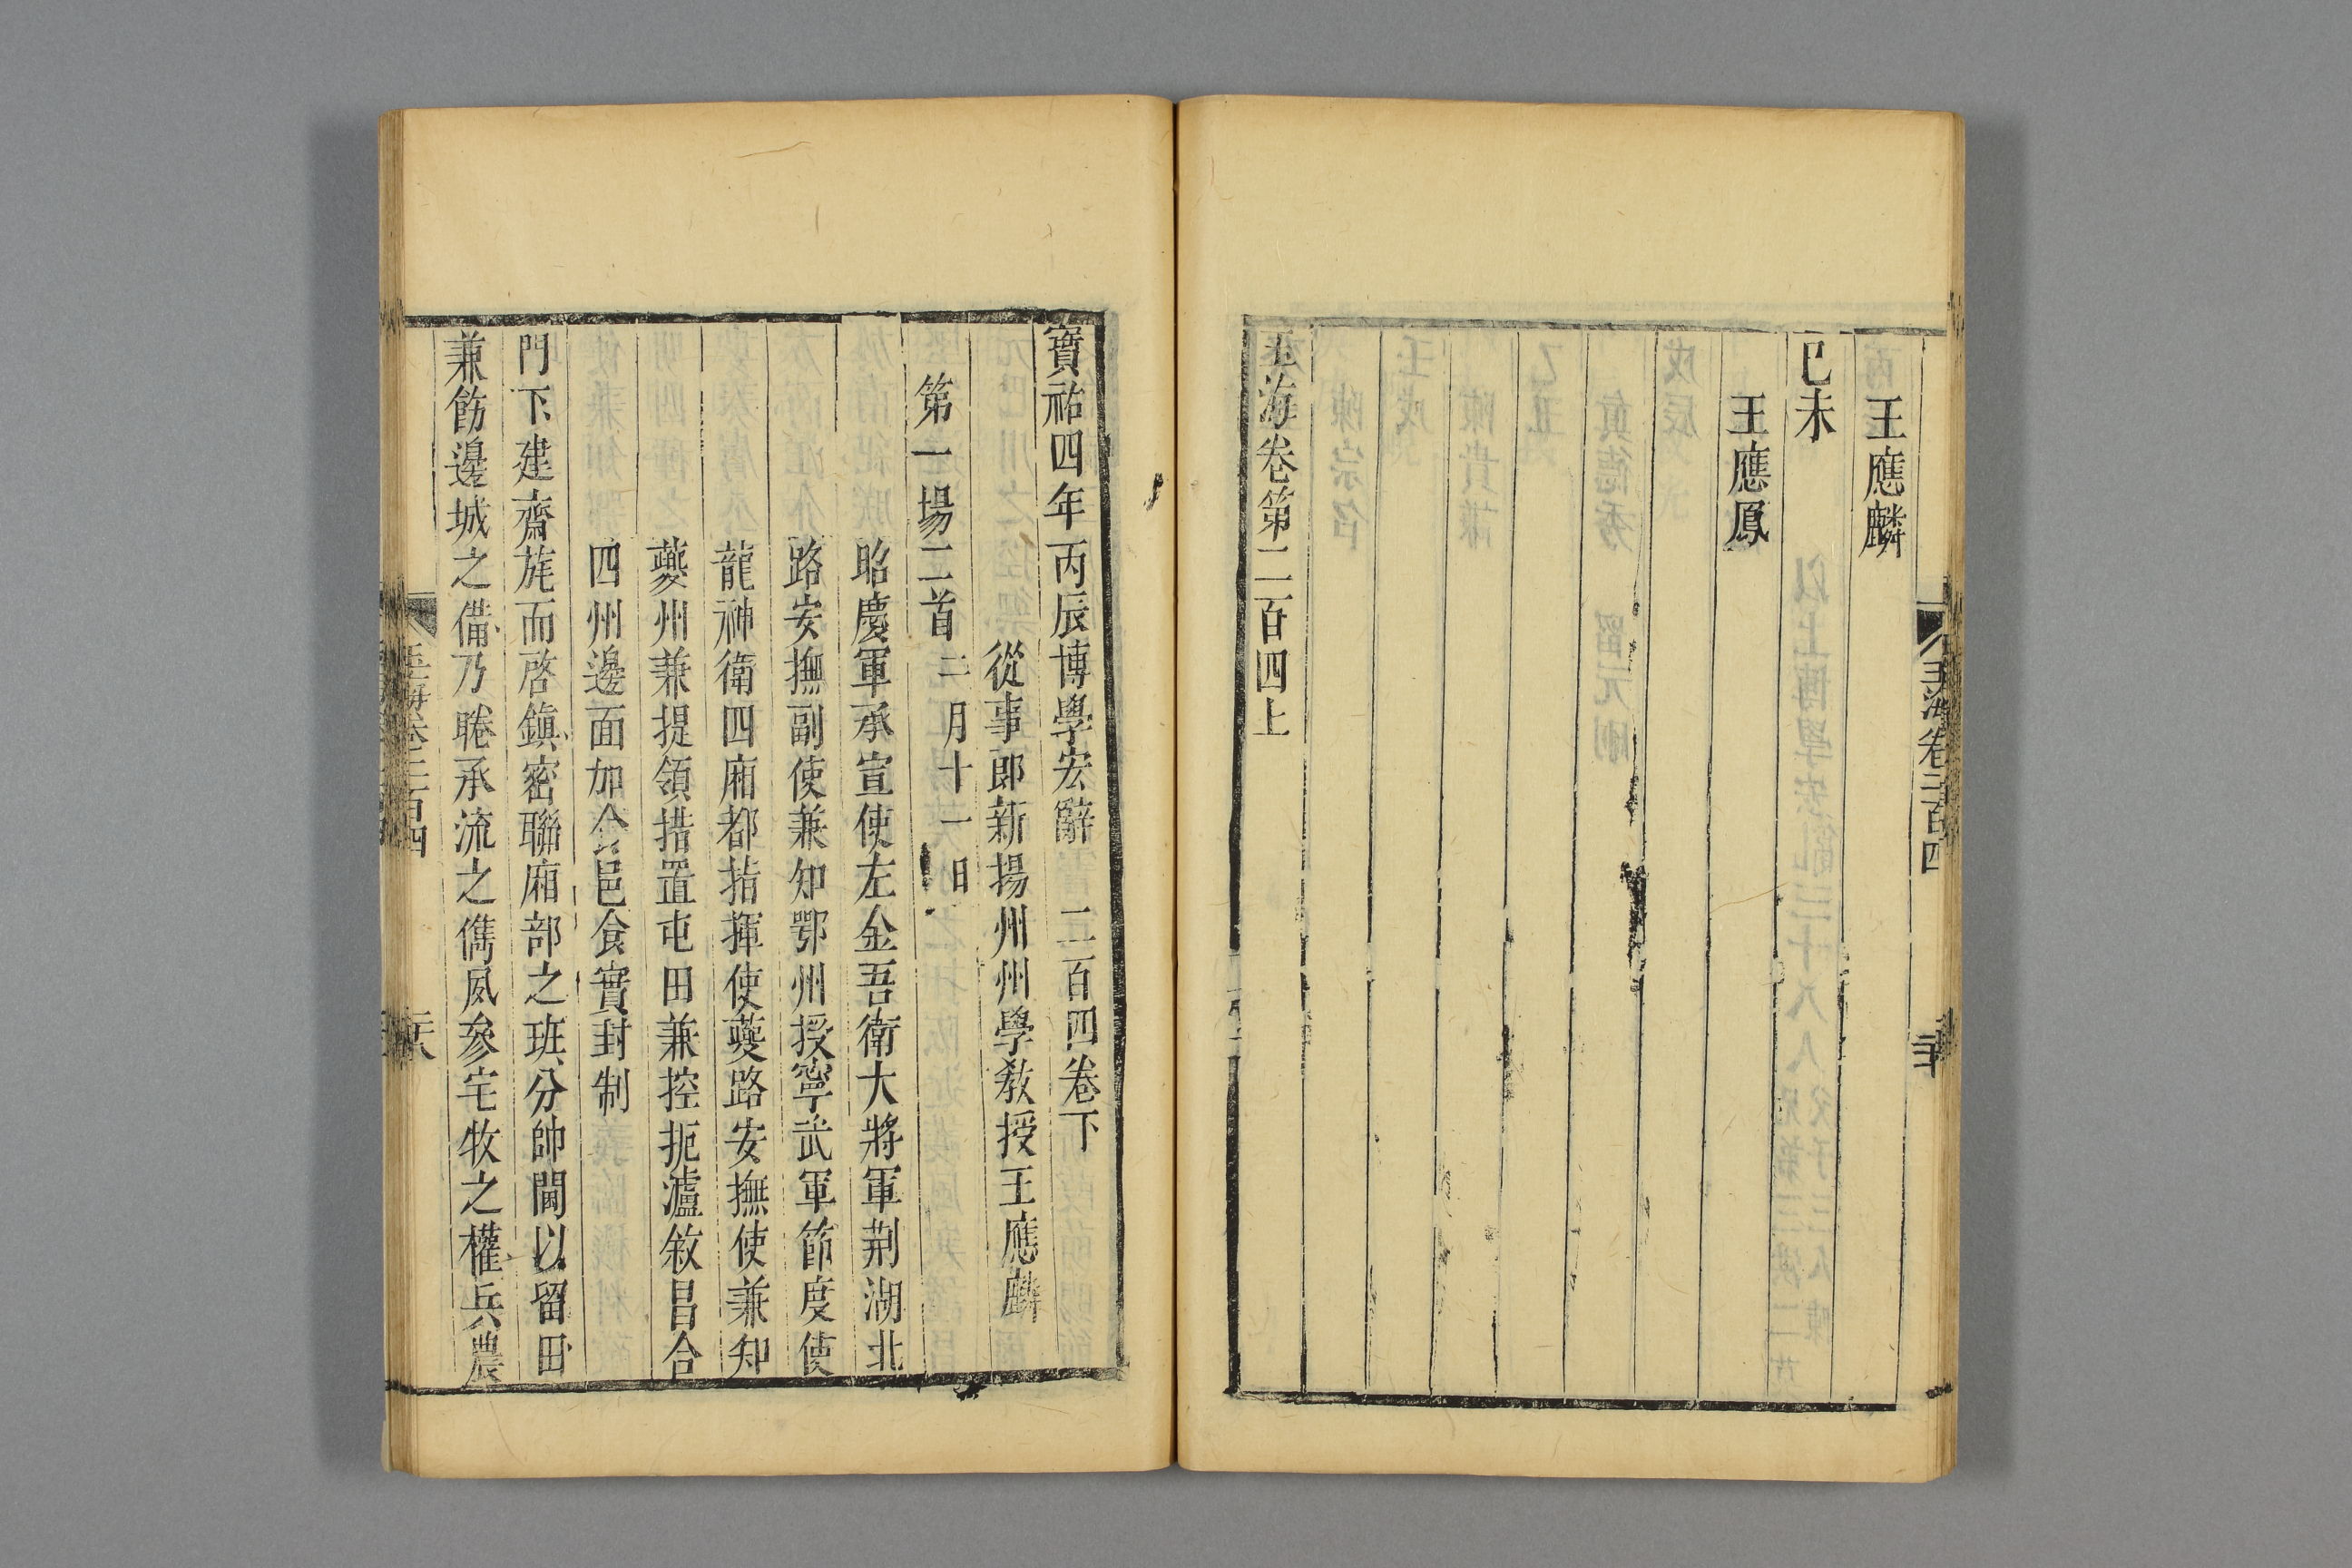 王應麟
巳未
王應鳳
玉海卷第二百四上
玉海卷二百四
寶祐四年丙辰博學宏辭 二百四卷下
從事郎新揚州州學教授王應麟
第一場二首 二月十一日
昭慶軍承宣使左金吾衛大將軍荆湖北
路安撫副使兼知鄂州授寧武軍節度使
龍神衛四廂都指揮使夔路安撫使兼知
夔州兼提領措置屯田兼控扼瀘敘昌合
四州邊面加食邑食實封制
門下建齋旄而啓鎮密聯廂部之班分帥閫以留田
兼飭邊城之備乃睠承流之儁夙參宅牧之權兵農
玉海卷二百四